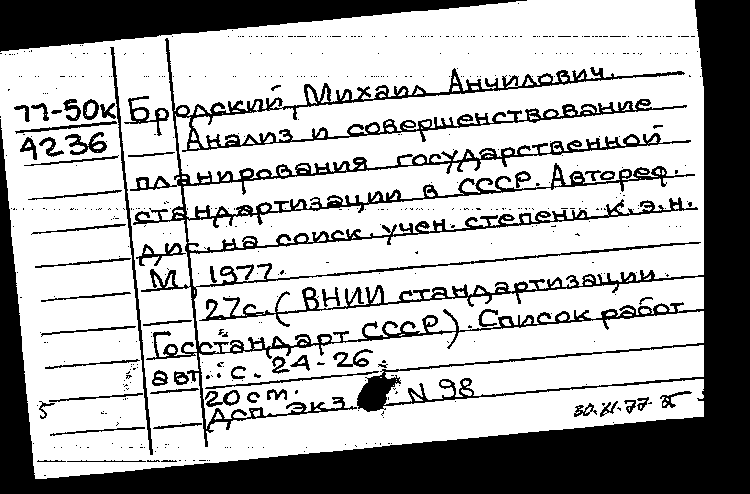 77-50к Бродский, Михаил Анчилович.
4236 Анализ и совершенствование
планирования государственной
стандартизации в СССР. Автореф.
дис. на соиск. учен. степени к.э.н.
М., 1977.
27с. (ВНИИ стандартизации
Госстандарт СССР). Список работ
авт.: с. 24-26.
20 см.
Дсп. экз. N 98